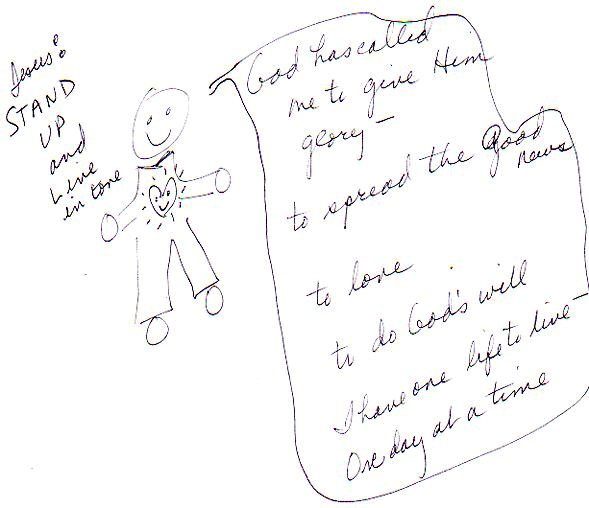 Jesus:
STAND
UP
and
Live
in love
God has called
me to give Him
glory –
to spread the Good
news
to love
to do God's will
I have one life to live –
One day at a time